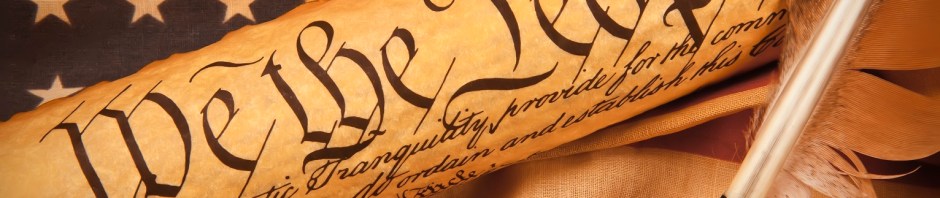 We the People
tic Tranquility, provide for the comm
do ordain and establish this Co